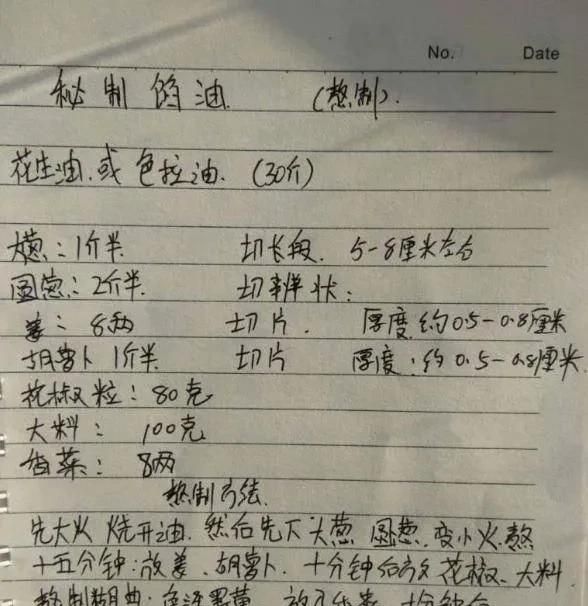 No. Date
秘制馅油 (熬制).
花生油.或色拉油. (30斤)
大葱:1斤半. 切长段. 5-8厘米左右
圆葱:2斤半. 切辨状:
姜:8两 切片. 厚度约0.5-0.8厘米
胡萝卜1斤半. 切片 厚度:约0.5-0.8厘米.
花椒粒:80克
大料: 100克
香菜: 8两
熬制方法.
先大火烧开油.然后先下大葱圆葱.变小火熬
十五分钟:放姜.胡萝卜.十分钟后放花椒.大料.
熬制